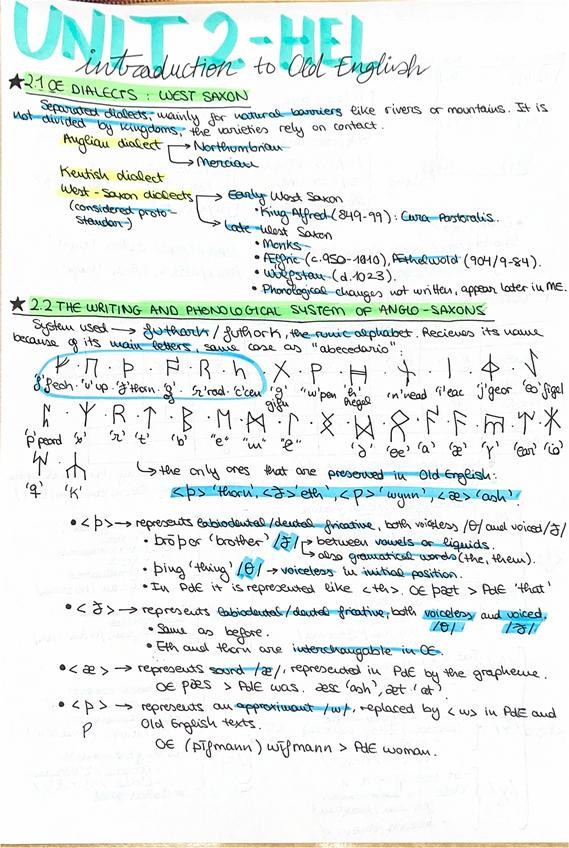 UNIT 2-HEL
introduction to Old English
★2.1 OE DIALECTS: WEST SAXON
Separated dialects, mainly for natural barriers like rivers or mountains. It is
not divided by kingdoms, the varieties rely on contact.
Anglian dialect → Northumbrian
→ Mercian
Kentish dialect
West-Saxon dialects → Early West Saxon
(considered proto-
standar)
• King Alfred (849-99): Cura Pastoralis.
→ Late West Saxon
• Monks
• Ælfric (c.950-1010), Æthelwold (904/9-84).
• Wulfstan (d.1023).
• Phonological changes not written, appear later in ME.
★ 2.2 THE WRITING AND PHONOLOGICAL SYSTEM OF ANGLO-SAXONS
System used → futhark/futhork, the runic alphabet. Recieves its name
because of its main letters, same case as "abecedario":
ᚠ · ᚢ · ᚦ · ᚩ · ᚱ · ᚳ · ᚷ · ᚹ · ᚻ · ᚾ · ᛁ · ᛄ · ᛇ
'f' feoh 'u' up 'thorn 'rad 'c' cen 'g' gifu 'w' pen 'h' hegel 'n' nead 'i' eac 'j' gear 'eo' figel
'p' peord 'x' 'r' 't' 'b' "e" "m" "l" 'œe' 'a' 'æ' 'Y' 'ear' 'io'
'q' 'k'
↳ the only ones that are preserved in Old English:
<þ> 'thorn', <ð> 'eth', <ƿ> 'wynn', <æ> 'ash'.
• <þ> → represents labiodental/dental fricative, both voiceless /θ/ and voiced /ð/
• brōþor 'brother' /ð/ → between vowels or liquids.
→ also gramatical words (the, them).
• þing 'thing' /θ/ → voiceless in initial position.
• In PdE it is represented like <th>. OE þæt > PdE 'that'
• <ð> → represents labiodental/dental fricative, both voiceless and voiced.
/θ/ /ð/
• Same as before.
• Eth and thorn are interchangable in OE.
• <æ> → represents sound /æ/, represented in PdE by the grapheme.
OE pæs > PdE was. æsc 'ash', æt 'at'
• <ƿ> → represents an approximant /w/, replaced by <w> in PdE and
ƿ Old English texts.
OE (ƿīfmann) wīfmann > PdE woman.